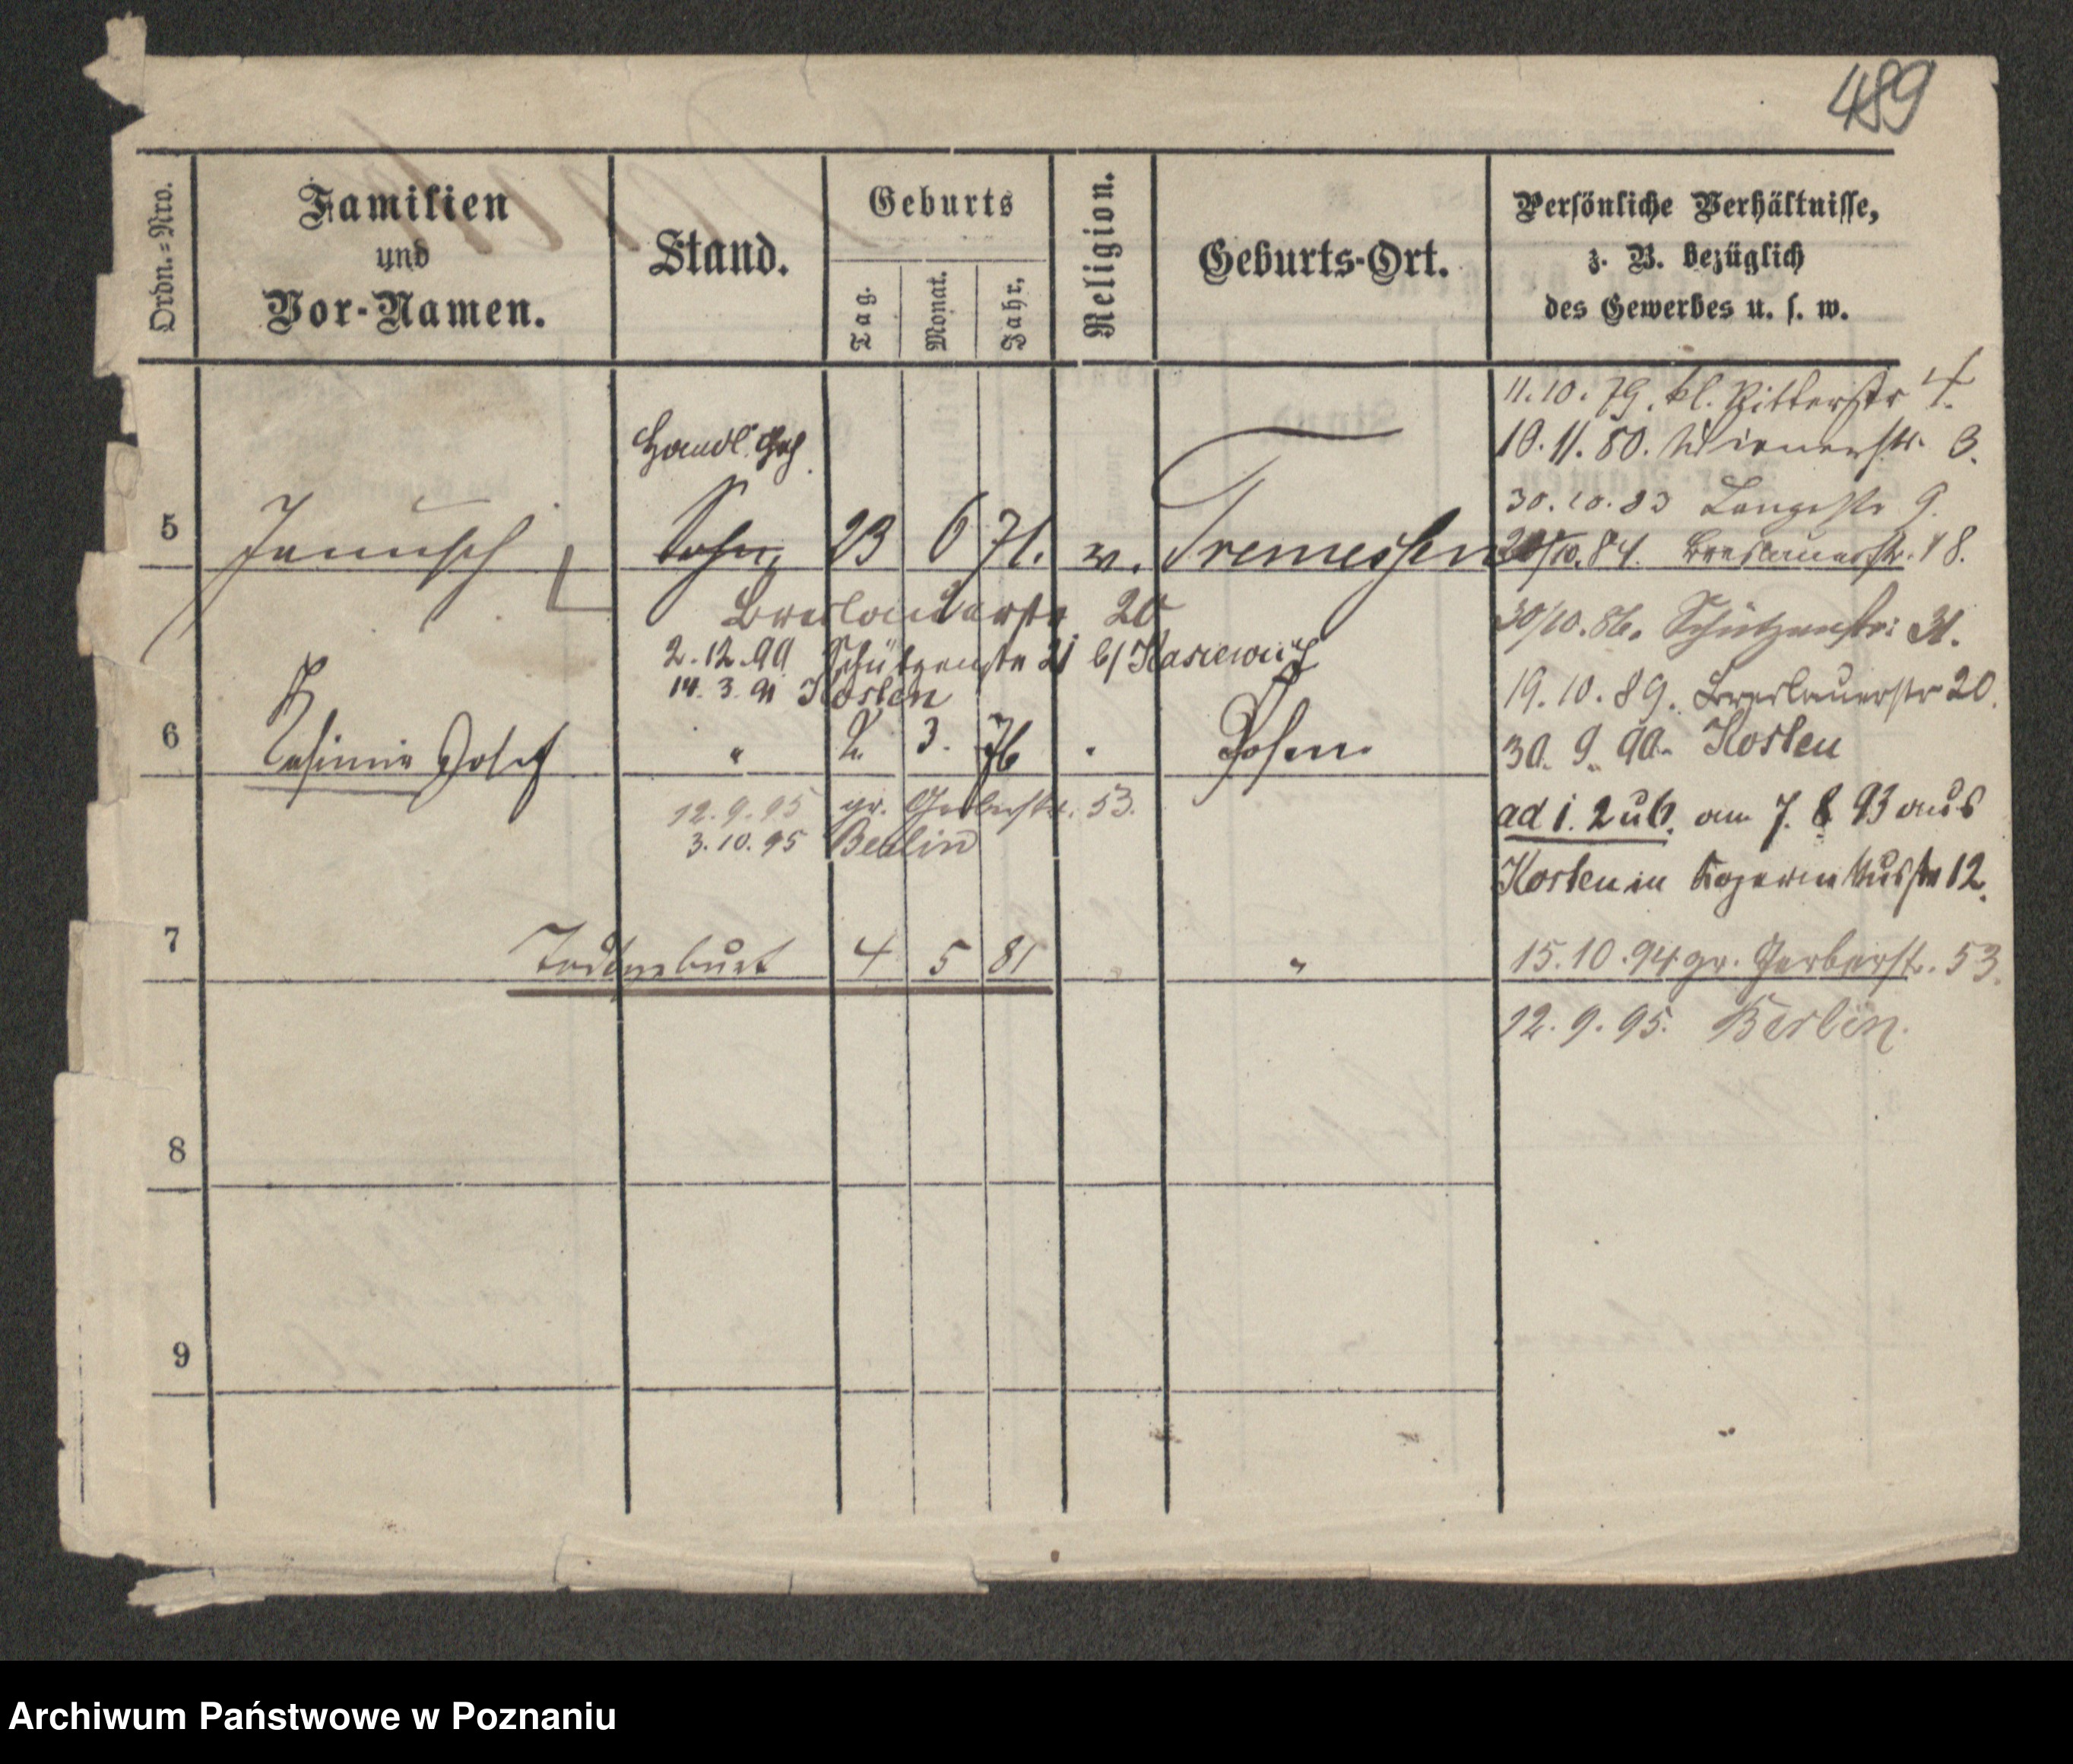 489
Ordn.=Nro.
Familien
und
Vor-Namen.
Stand.
Geburts
Tag.
Monat.
Jahr.
Religion.
Geburts-Ort.
Persönliche Verhältnisse,
z. B. bezüglich
des Gewerbes u. s. w.
11.10.79. kl. Ritterstr 4.
Handl.
10.11.80. Wienerstr. 3.
30.10.83 Langestr 9.
5 Sohn 23 6 71. Tremessen
/10.84. Breslauerstr. 18.
Breslauerstr 20
30/10.86. Schützenstr: 31.
2.12.90 Schützenstr 21 b/
14.3.91 Kosten
19.10.89. Breslauerstr 20.
6 Kasimir Josef " 2. 3. 76 Posen
30.9.90. Kosten
12.9.95 gr. Gerberstr. 53.
3.10.95 Berlin
ad 1. 2 u 6. am 7. 8 93 aus
Kosten in 12.
7 Todtgeburt 4 5 81 "
15.10.94 gr. Gerberstr. 53.
12.9.95. Berlin.
8
9
Archiwum Państwowe w Poznaniu